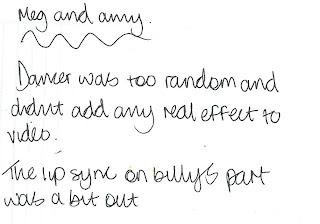 Meg and amy.
Dancer was too random and
didnt add any real effect to
video.
The lip sync on billy's part
was a bit out